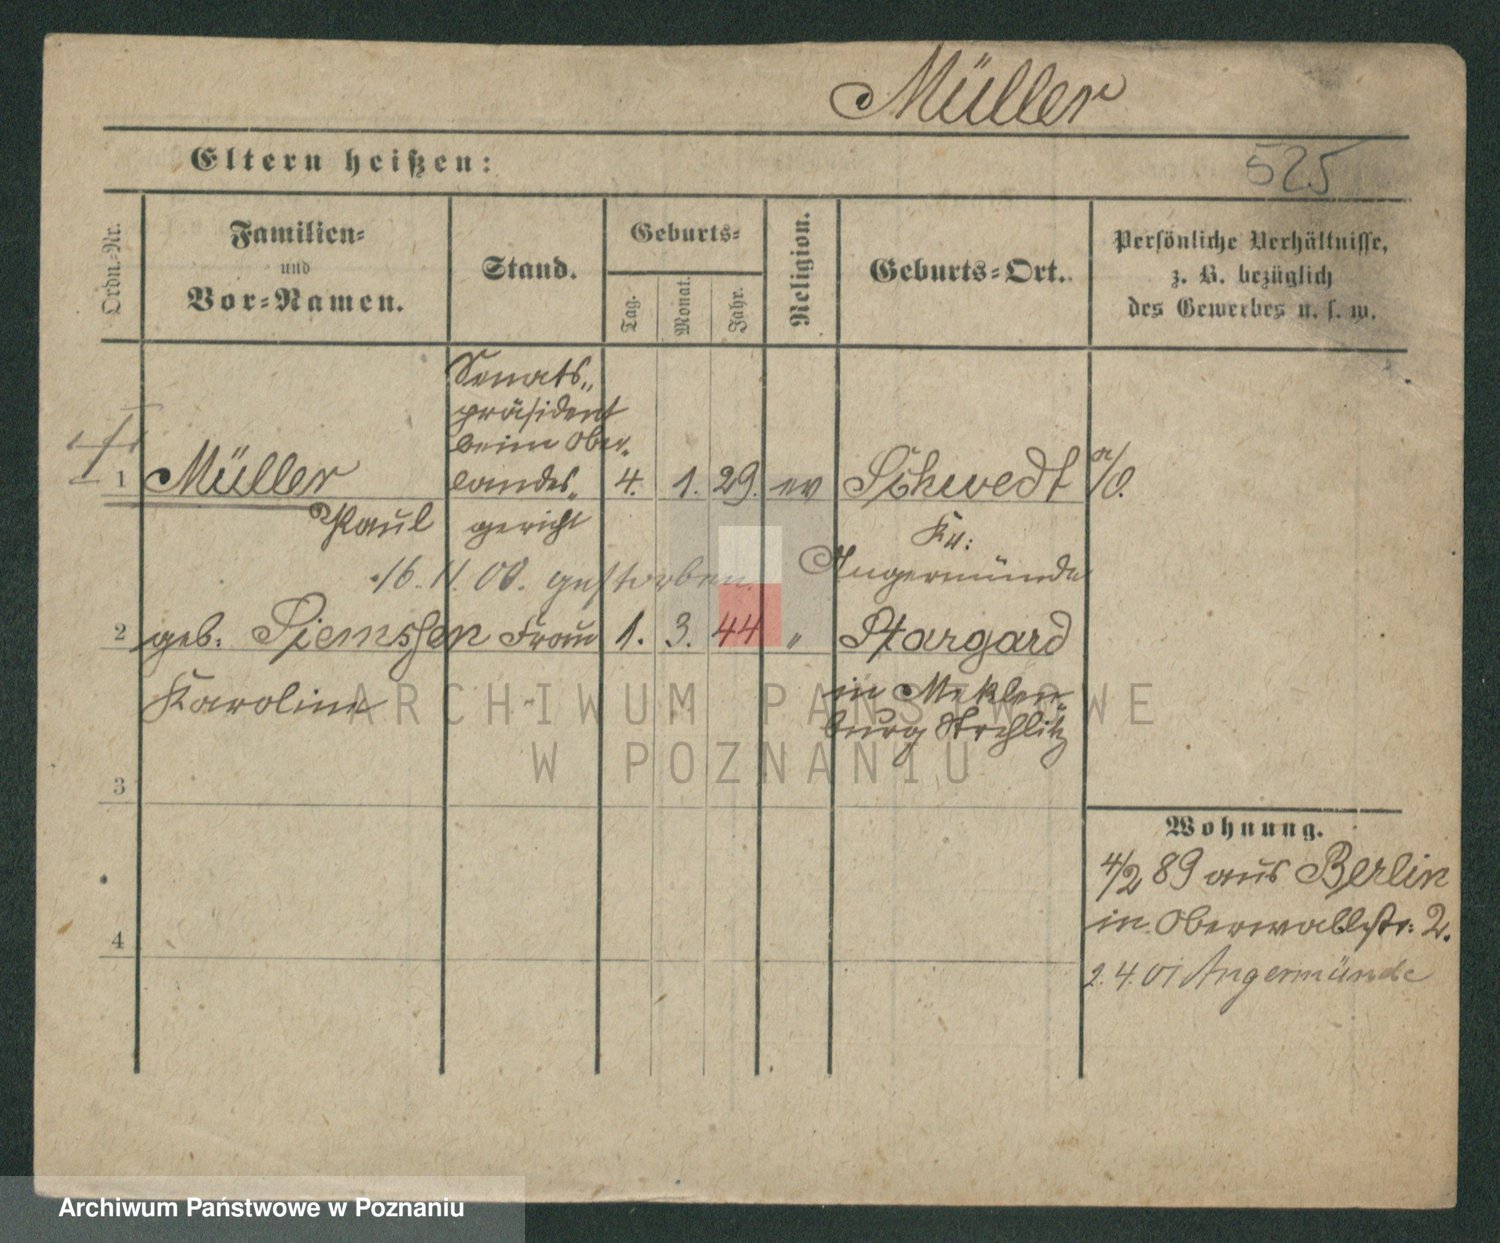 Müller
Eltern heißen:
525
Ordn.-Nr.
Familien-
und
Vor-Namen.
Stand.
Geburts-
Tag.
Monat.
Jahr.
Religion.
Geburts-Ort.
Persönliche Verhältnisse,
z. B. bezüglich
des Gewerbes u. s. w.
Senats-
präsident
beim Ober-
1 Müller landes- 4. 1. 29. ev Schwedt a/O.
Paul gericht Kr:
Angermünde
16.11.00. gestorben.
2 geb. Siemssen Frau 1. 3. 44 " Stargard
Karoline in Meklen-
burg Strelitz
ARCHIWUM PAŃSTWOWE
W POZNANIU
3
Wohnung.
4/2 89 aus Berlin
in Oberwallstr. 2.
4
2.4.01 Angermünde
Archiwum Państwowe w Poznaniu